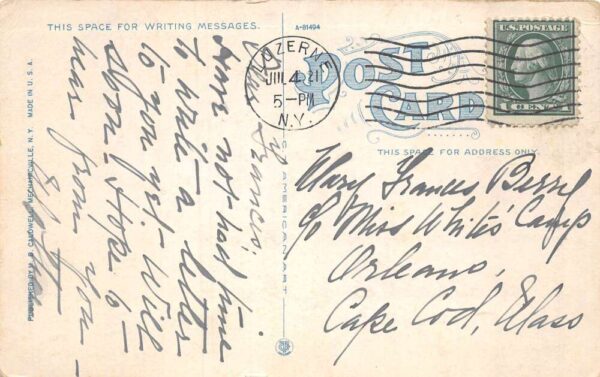 THIS SPACE FOR WRITING MESSAGES.
A-81494
POST
CARD
THIS SPACE FOR ADDRESS ONLY.
LUZERNE
JUL 4 21
5-PM
N.Y.
U.S. POSTAGE
1 CENT 1
Dear Francis;
have not had time
to write a letter
to you yet - Will
soon. Hope to
hear from you -
Mary Frances Berry
c/o Miss White's Camp
Orleans,
Cape Cod, Mass
PUBLISHED BY J. B. CALDWELL, MECHANICVILLE, N.Y. MADE IN U.S.A.
C.T. AMERICAN ART